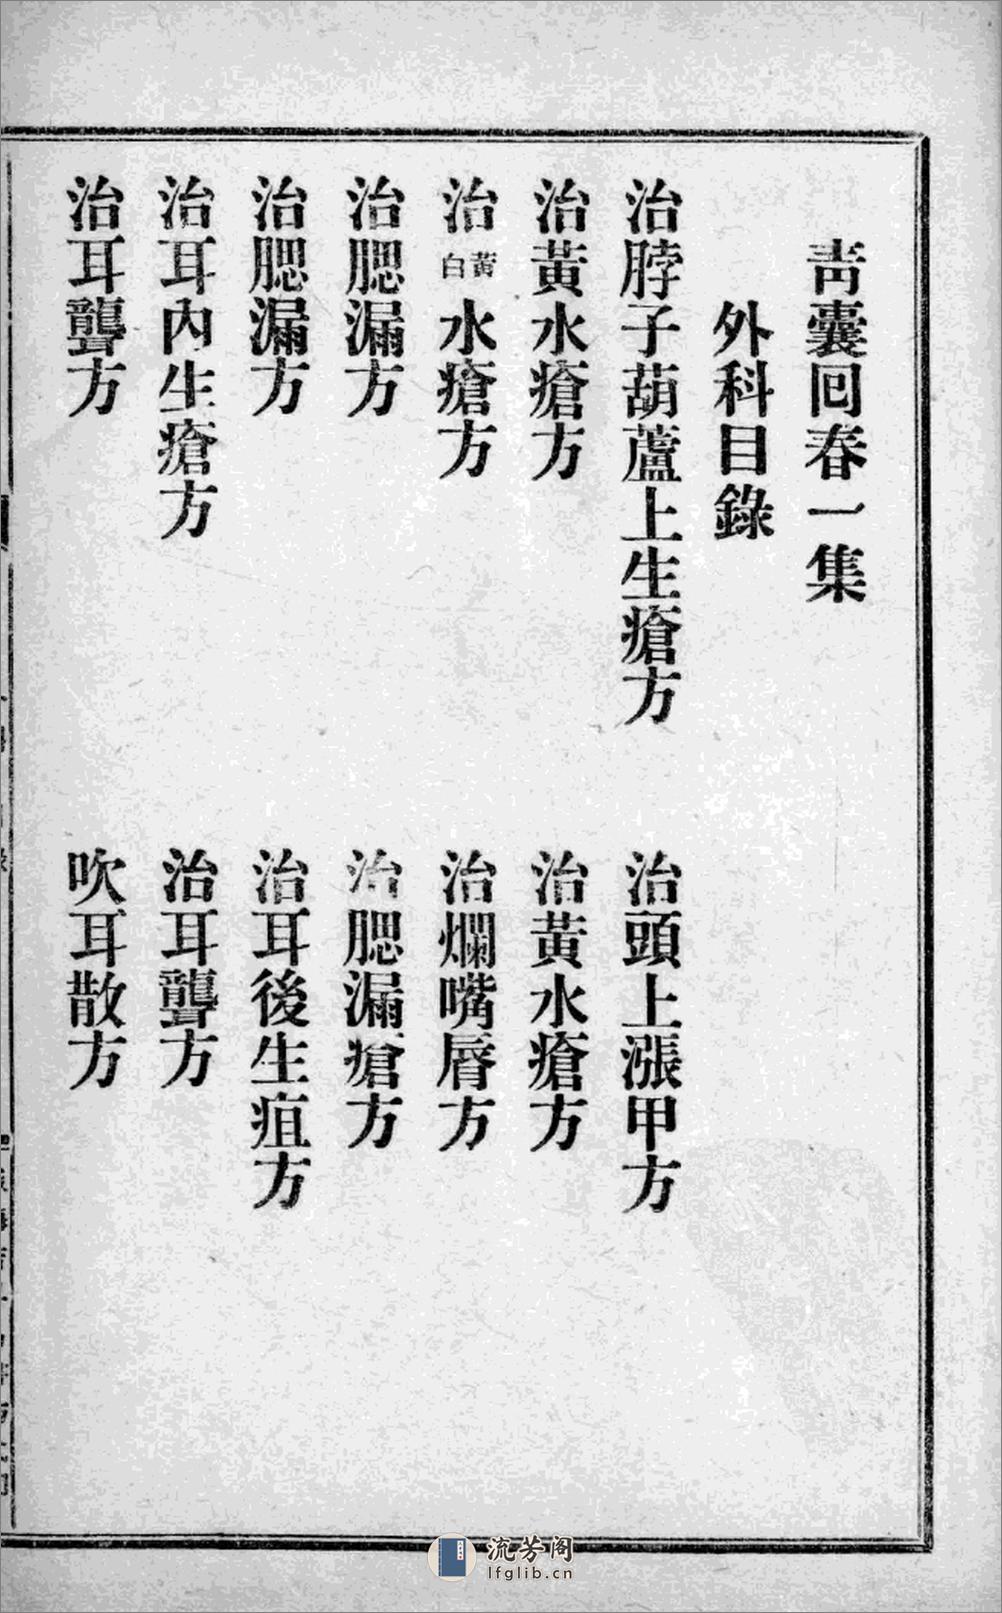 靑囊囘春一集
外科目錄
治脖子葫蘆上生瘡方　治頭上漲甲方
治黃水瘡方　治黃水瘡方
治黃白水瘡方　治爛嘴唇方
治腮漏方　治腮漏瘡方
治腮漏方　治耳後生疽方
治耳內生瘡方　治耳聾方
治耳聾方　吹耳散方
流芳阁
lfglib.cn